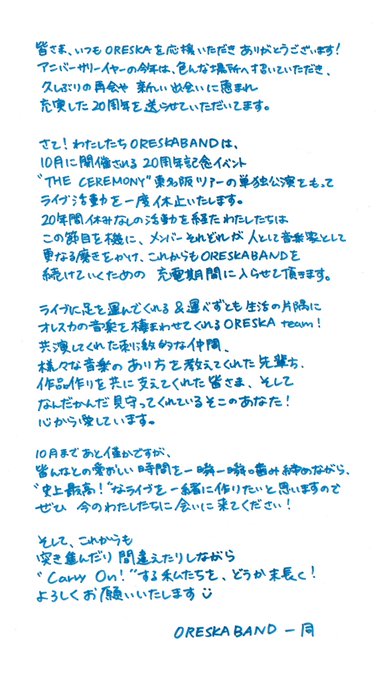 皆さま、いつもORESKAを応援いただきありがとうございます！
アニバーサリーイヤーの今年は、色んな場所へ呼んでいただき、
久しぶりの再会や 新しい出会いに恵まれ
充実した20周年を送らせていただいてます。
さて！わたしたちORESKABANDは、
10月に開催される 20周年記念イベント
"THE CEREMONY"東名阪ツアーの単独公演をもって
ライブ活動を一度休止いたします。
20年間休みなしの活動を経たわたしたちは
この節目を機に、メンバーそれぞれが 人として音楽家として
更なる磨きをかけ、これからもORESKABANDを
続けていくための 充電期間に入らせて頂きます。
ライブに足を運んでくれる & 運べずとも 生活の片隅に
オレスカの音楽を棲まわせてくれるORESKA team！
共演してくれた刺激的な仲間、
様々な音楽の あり方を教えてくれた先輩方、
作品作りを共に支えてくれた皆さま、そして
なんだかんだ見守ってくれているそこのあなた！
心から愛しています。
10月まであと僅かですが、
皆んなとの愛おしい時間を一瞬一瞬噛み締めながら、
"史上最高！"なライブを一緒に作りたいと思いますので
ぜひ 今のわたしたちに会いに来てください！
そして、これからも
突き進んだり 間違えたりしながら
"Carry On！"する私たちを、どうか末長く！
よろしくお願いいたします
ORESKABAND 一同